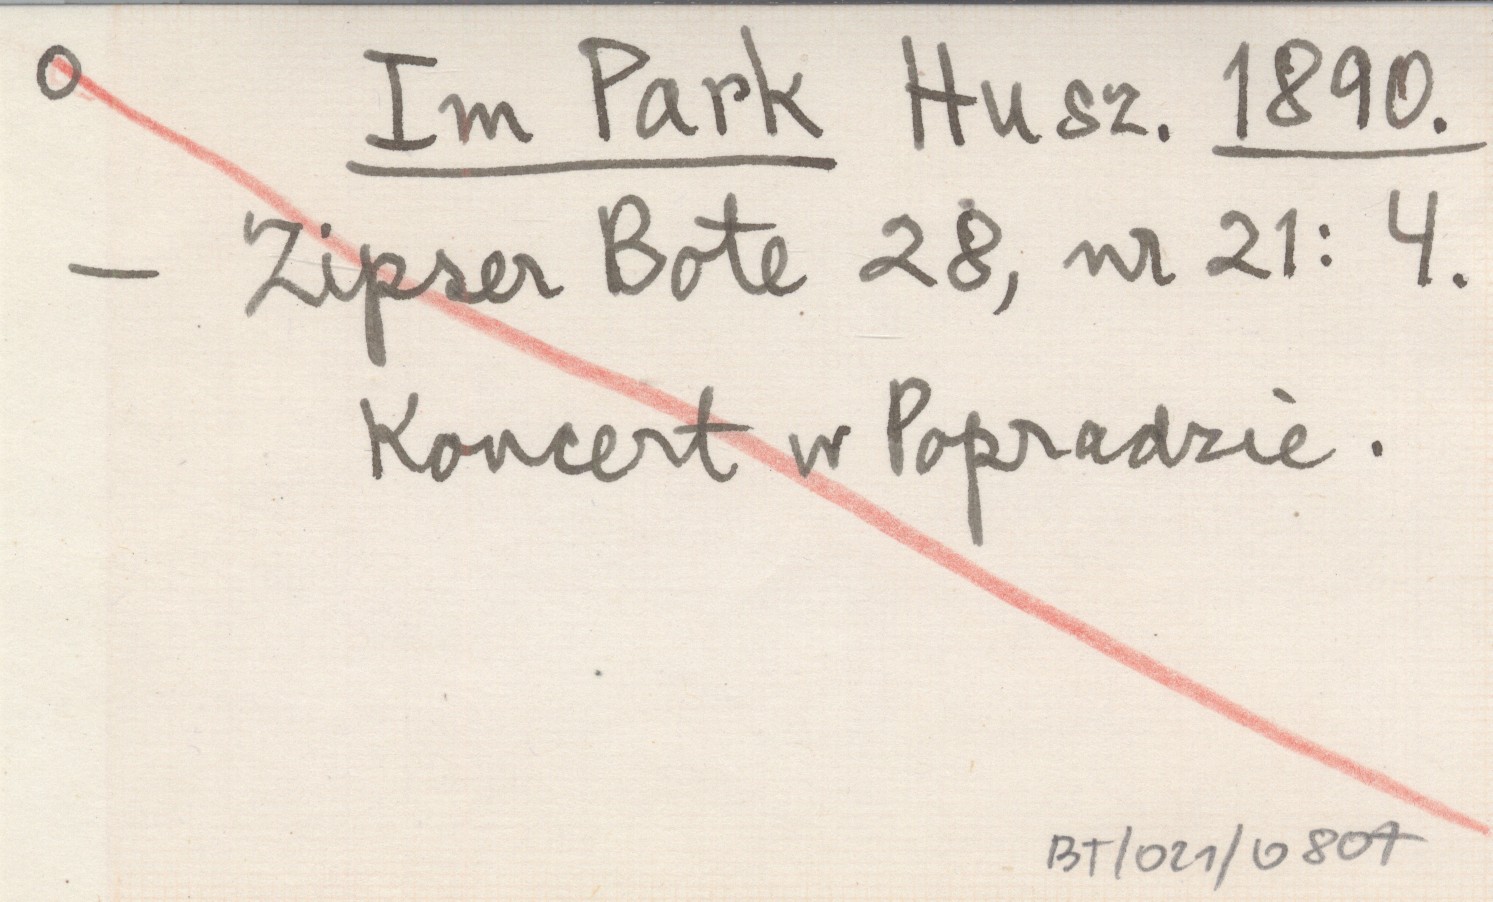 O Im Park Husz. 1890.
— Zipser Bote 28, nr 21: 4.
Koncert w Popradzie.
BT/021/0807